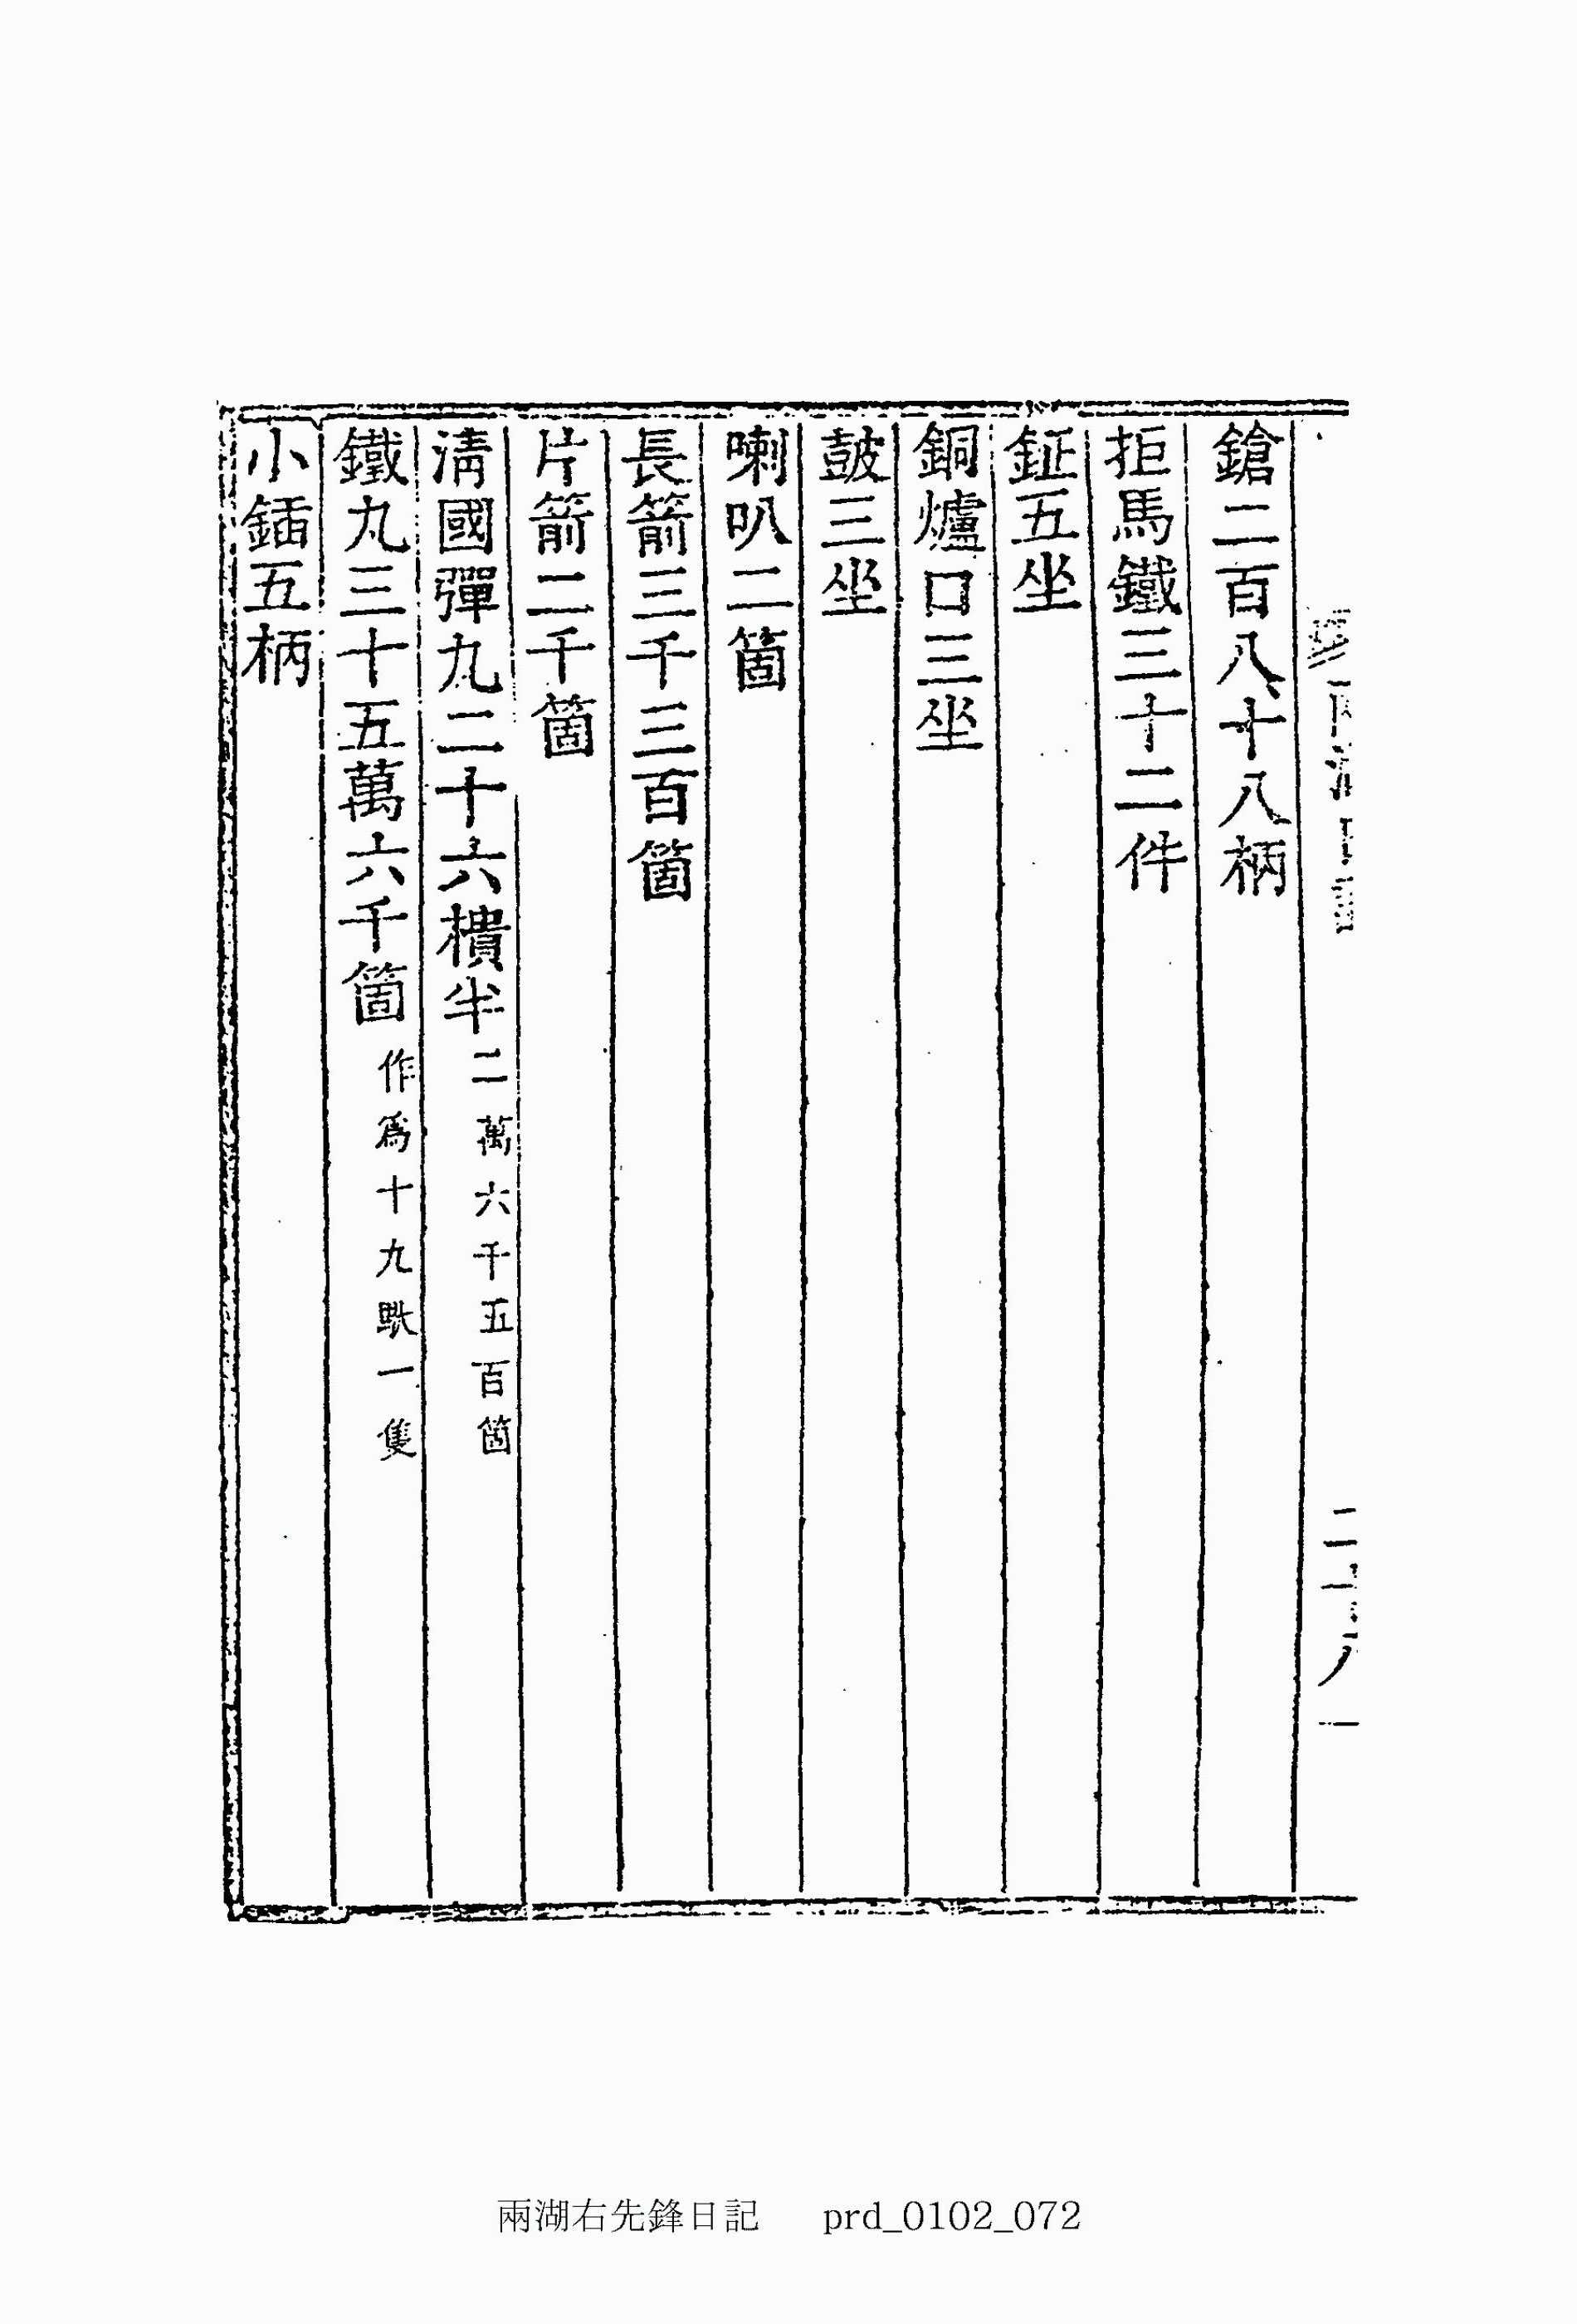 鎗二百八十八柄
拒馬鐵三十二件
鉦五坐
銅爐口三坐
皷三坐
喇叭二箇
長箭三千三百箇
片箭二千箇
淸國彈丸二十六樻半二萬六千五百箇
鐵丸三十五萬六千箇作爲十九䭾一隻
小鍤五柄
兩湖右先鋒日記 prd_0102_072